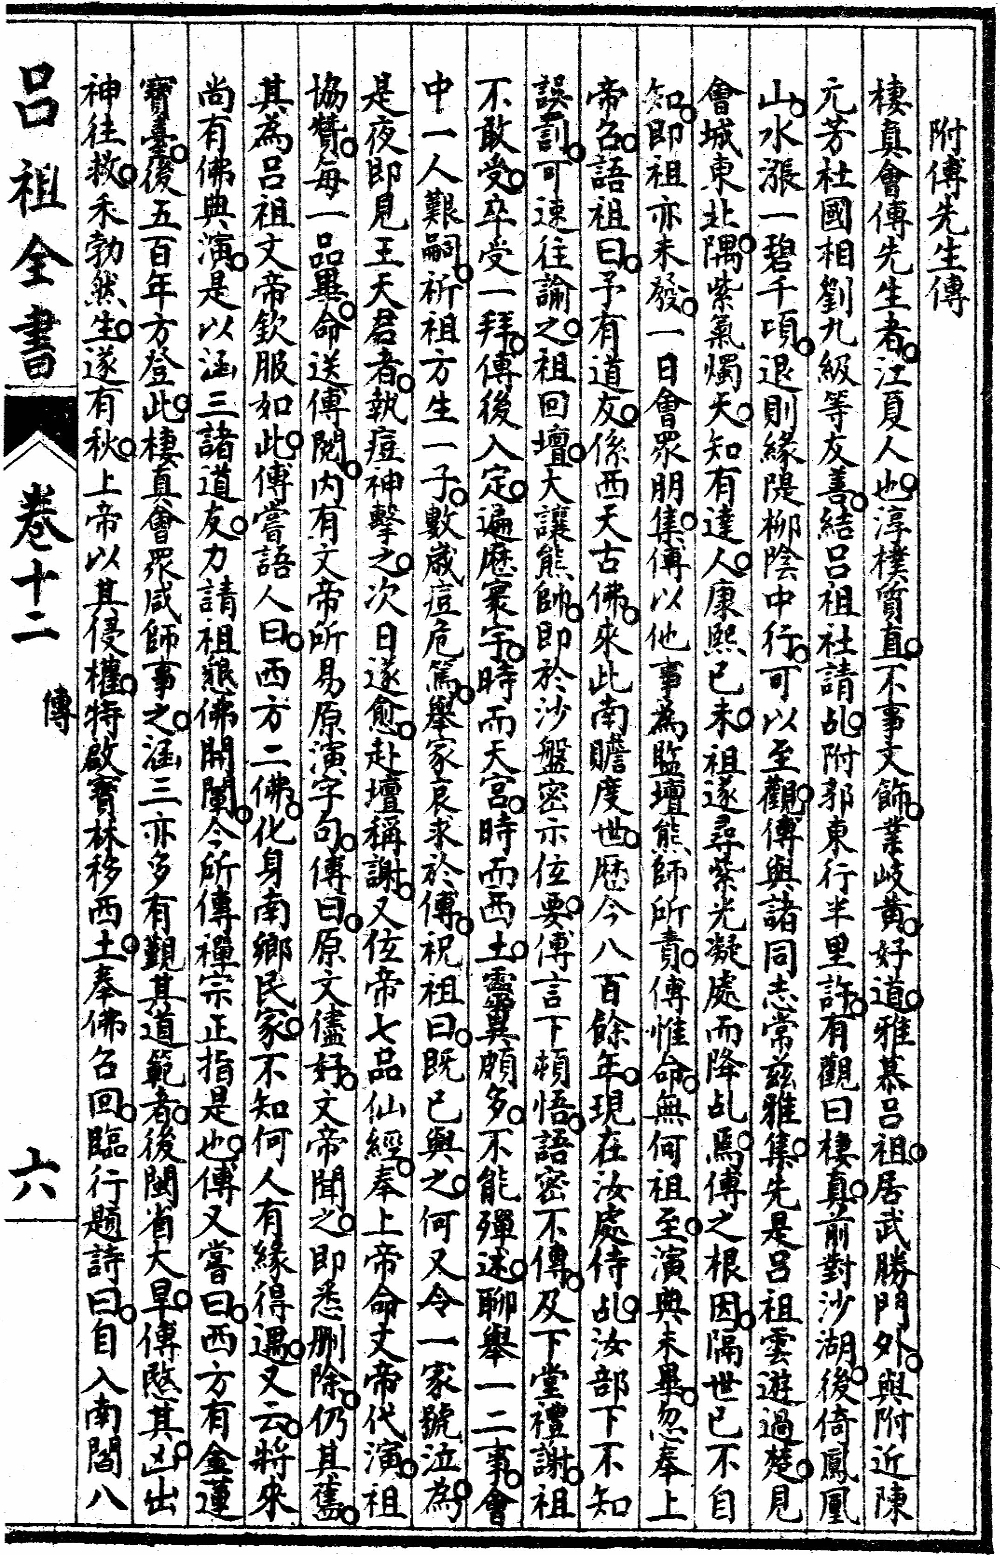 附傅先生傳
棲真會傅先生者江夏人也淳樸質直不事文飾業岐黃好道雅慕呂祖居武勝門外與附近陳
亢芳杜國相劉九級等友善結呂祖社請乩附郭東行半里許有觀曰棲真前對沙湖後倚鳳凰
山水漲一碧千頃退則緣隄柳陰中行可以至觀傅與諸同志常茲雅集先是呂祖雲遊過楚見
會城東北隅紫氣燭天知有達人康熙己未祖遂尋紫光凝處而降乩焉傅之根因隔世已不自
知即祖亦未發一日會眾朋集傅以他事為監壇熊師所責傅惟命無何祖至演典未畢忽奉上
帝召語祖曰予有道友係西天古佛來此南贍度世歷今八百餘年現在汝處侍乩汝部下不知
誤罰可速往諭之祖回壇大讓熊帥即於沙盤密示位要傅言下頓悟語密不傳及下堂禮謝祖
不敢受卒受一拜傅後入定遍歷寰宇時而天宮時而西土靈異頗多不能殫述聊舉一二事會
中一人艱嗣祈祖方生一子數歲痘危篤舉家哀求於傅祝祖曰既已與之何又令一家號泣為
是夜即見王天君者執痘神擊之次日遂愈赴壇稱謝又位帝七品仙經奉上帝命文帝代演祖
協贊每一品畢命送傅閱內有文帝所易原演字句傅曰原文儘好文帝聞之即悉刪除仍其舊
其為呂祖文帝欽服如此傅嘗語人曰西方二佛化身南鄉民家不知何人有緣得遇又云將來
尚有佛典演是以涵三諸道友力請祖懇佛開闡今所傳禪宗正指是也傅又嘗曰西方有金蓮
寶臺後五百年方登此棲真會眾咸師事之涵三亦多有覲其道範者後閩省大旱傅愍其凶出
神往救禾勃然生遂有秋上帝以其侵權特啟寶林移西土奉佛召回臨行題詩曰自入南閻八
呂祖全書
卷十二
傳
六